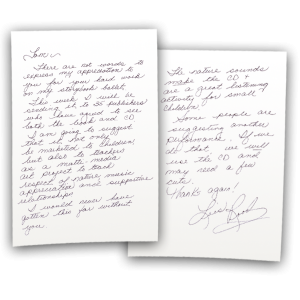 Tom ~
There are not words to
express my appreciation to
you for your hard work
on my storybook ballet.
This week I will be
sending it to 35 publishers
who have agreed to see
both the book and CD.
I am going to suggest
that it not only
be marketed to children,
but also to teachers
as a multi media
art project to teach
respect of nature, music
appreciation and supportive
relationships.
I would never have
gotten this far without
you.
The nature sounds
make the CD
are a great listening
activity for small
children.
Some people are
suggesting another
performance. If we
do that, we will
use the CD and
may need a few
cuts.
Thanks again!